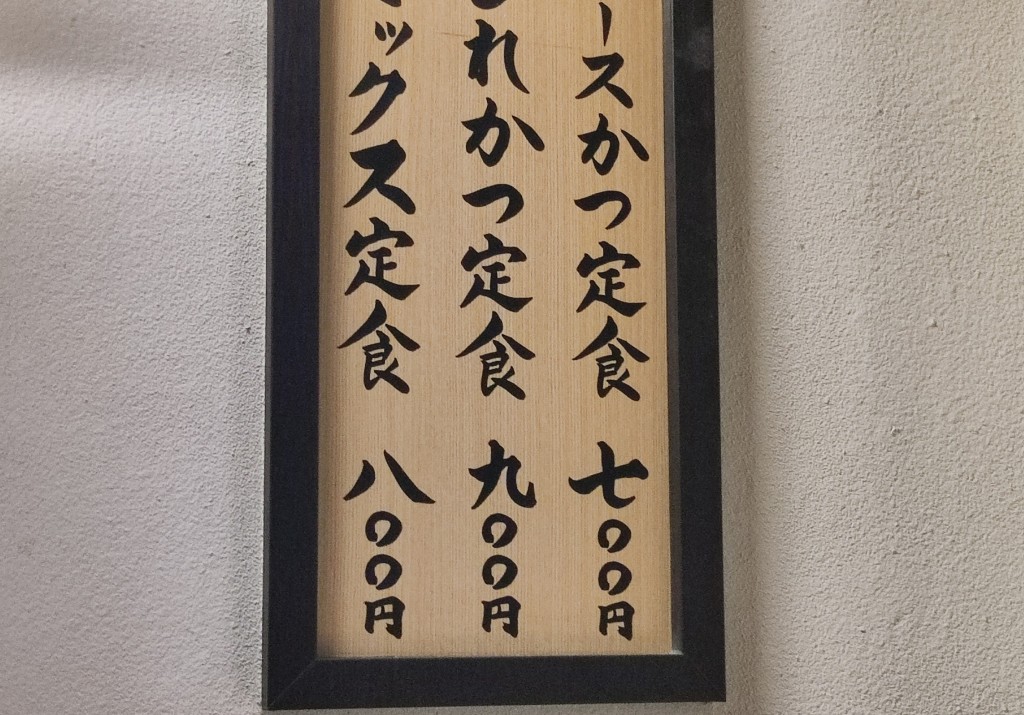 ースかつ定食 七〇〇円
れかつ定食 九〇〇円
ックス定食 八〇〇円